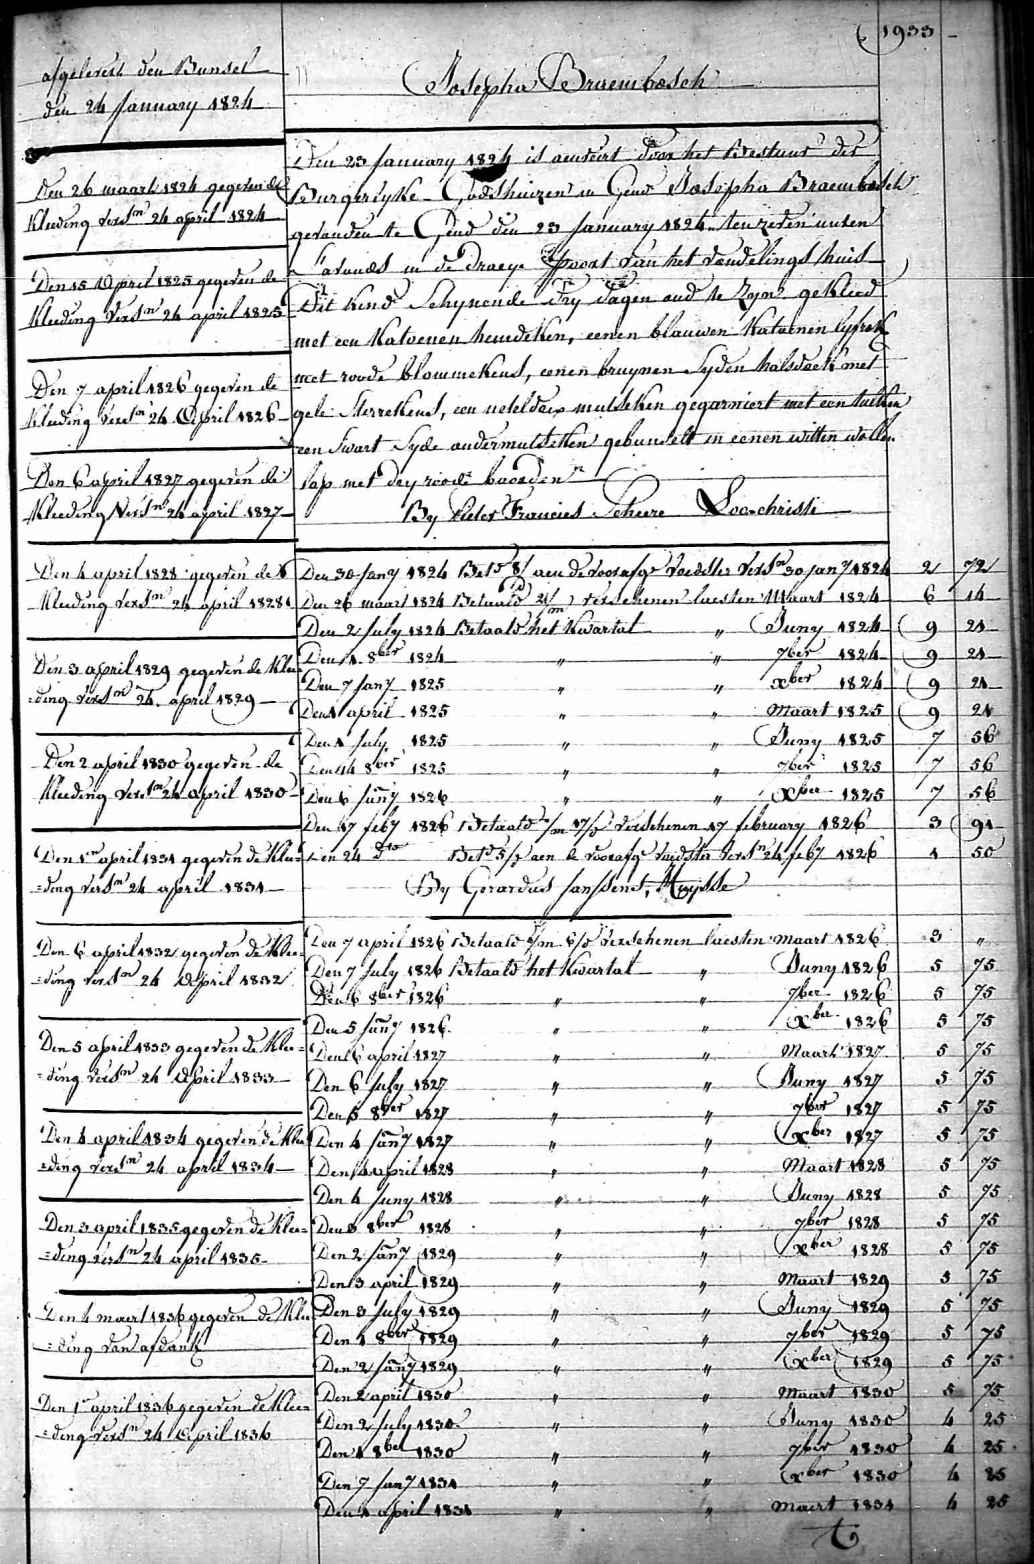 1933
afgelevert den Bunsel
den 24 January 1824
Josepha Braembosch
Den 23 January 1824 is aenveirt door het Bestuur der
Burgerlyke Godshuizen in Gend Josepha Braembosch
gevonden te Gend den 23 January 1824 ten zeven uuren
s'avonds in de Draeye Poort van het vondelings huis
Dit kind Schynende Dry Dagen oud te Zyn gekleed
met een Katoenen hemdeken, eenen blauwen Katoenen lyfrok
met roode blommekens, eenen bruynen Syden halsdoek met
gele Sterrekens, een neteldoex mutseken gegarniert met een tulleken
een Swart Syde ondermutseken gebunselt in eenen witten wollen
lap met dry roode boorden
By Pieter Francies Scheire Loochristi
Den 26 maart 1824 gegeven de
Kleeding versn 24 april 1824
Den 15 April 1825 gegeven de
Kleeding versn 24 april 1825
Den 7 april 1826 gegeven de
Kleeding versn 24 April 1826
Den 6 april 1827 gegeven de
Kleeding Versn 24 april 1827
Den 4 april 1828 gegeven de
Kleeding versn 24 april 1828
Den 3 april 1829 gegeven de Klee=
=ding versn 24 april 1829
Den 2 april 1830 gegeven de
Kleeding versn 24 april 1830
Den 1en april 1831 gegeven de Klee=
=ding versn 24 april 1831
Den 6 april 1832 gegeven de Klee=
=ding versn 24 April 1832
Den 5 april 1833 gegeven de Klee=
=ding versn 24 April 1833
Den 4 april 1834 gegeven de Klee
=ding versn 24 april 1834
Den 3 april 1835 gegeven de Klee=
=ding versn 24 april 1835
Den 4 maert 1836 gegeven de Klee
=ding van afdank
Den 1en april 1836 gegeven de Klee=
=ding versn 24 April 1836
Den 30 Jany 1824 Betd aen de voorafge Voedster versn 30 jany 1824 2 72
Den 26 maart 1824 Betaald verschenen laesten Maart 1824 6 14
Den 2 July 1824 Betaald het Kwartal " Juny 1824 9 21
Den 1 8ber 1824 " " 7ber 1824 9 21
Den 7 Jany 1825 " " Xber 1824 9 21
Den 1 april 1825 " " Maart 1825 9 21
Den 1 July 1825 " " Juny 1825 7 56
Den 14 8ber 1825 " " 7ber 1825 7 56
Den 6 Jany 1826 " " Xber 1825 7 56
Den 17 feby 1826 Betaald verschenen 17 february 1826 3 91
en 24 do Betd aen de voorafge Voedster versn 24 feby 1826 1 50
By Gerardus Janssens, Huysse
Den 7 april 1826 Betaald verschenen laesten maart 1826 3 "
Den 7 July 1826 Betaald het Kwartal " Juny 1826 5 75
Den 6 8ber 1826 " " 7ber 1826 5 75
Den 5 Jany 1826 " " Xber 1826 5 75
Den 6 april 1827 " " Maart 1827 5 75
Den 6 July 1827 " " Juny 1827 5 75
Den 5 8ber 1827 " " 7ber 1827 5 75
Den 4 Jany 1827 " " Xber 1827 5 75
Den 4 april 1828 " " Maart 1828 5 75
Den 4 Juny 1828 " " Juny 1828 5 75
Den 3 8ber 1828 " " 7ber 1828 5 75
Den 2 Jany 1829 " " Xber 1828 5 75
Den 3 april 1829 " " Maart 1829 5 75
Den 3 July 1829 " " Juny 1829 5 75
Den 1 8ber 1829 " " 7ber 1829 5 75
Den 2 Jany 1829 " " Xber 1829 5 75
Den 2 april 1830 " " Maart 1830 5 75
Den 2 July 1830 " " Juny 1830 4 25
Den 1 8ber 1830 " " 7ber 1830 4 25
Den 7 Jany 1831 " " Xber 1830 4 25
Den 1 april 1831 " " Maert 1831 4 25